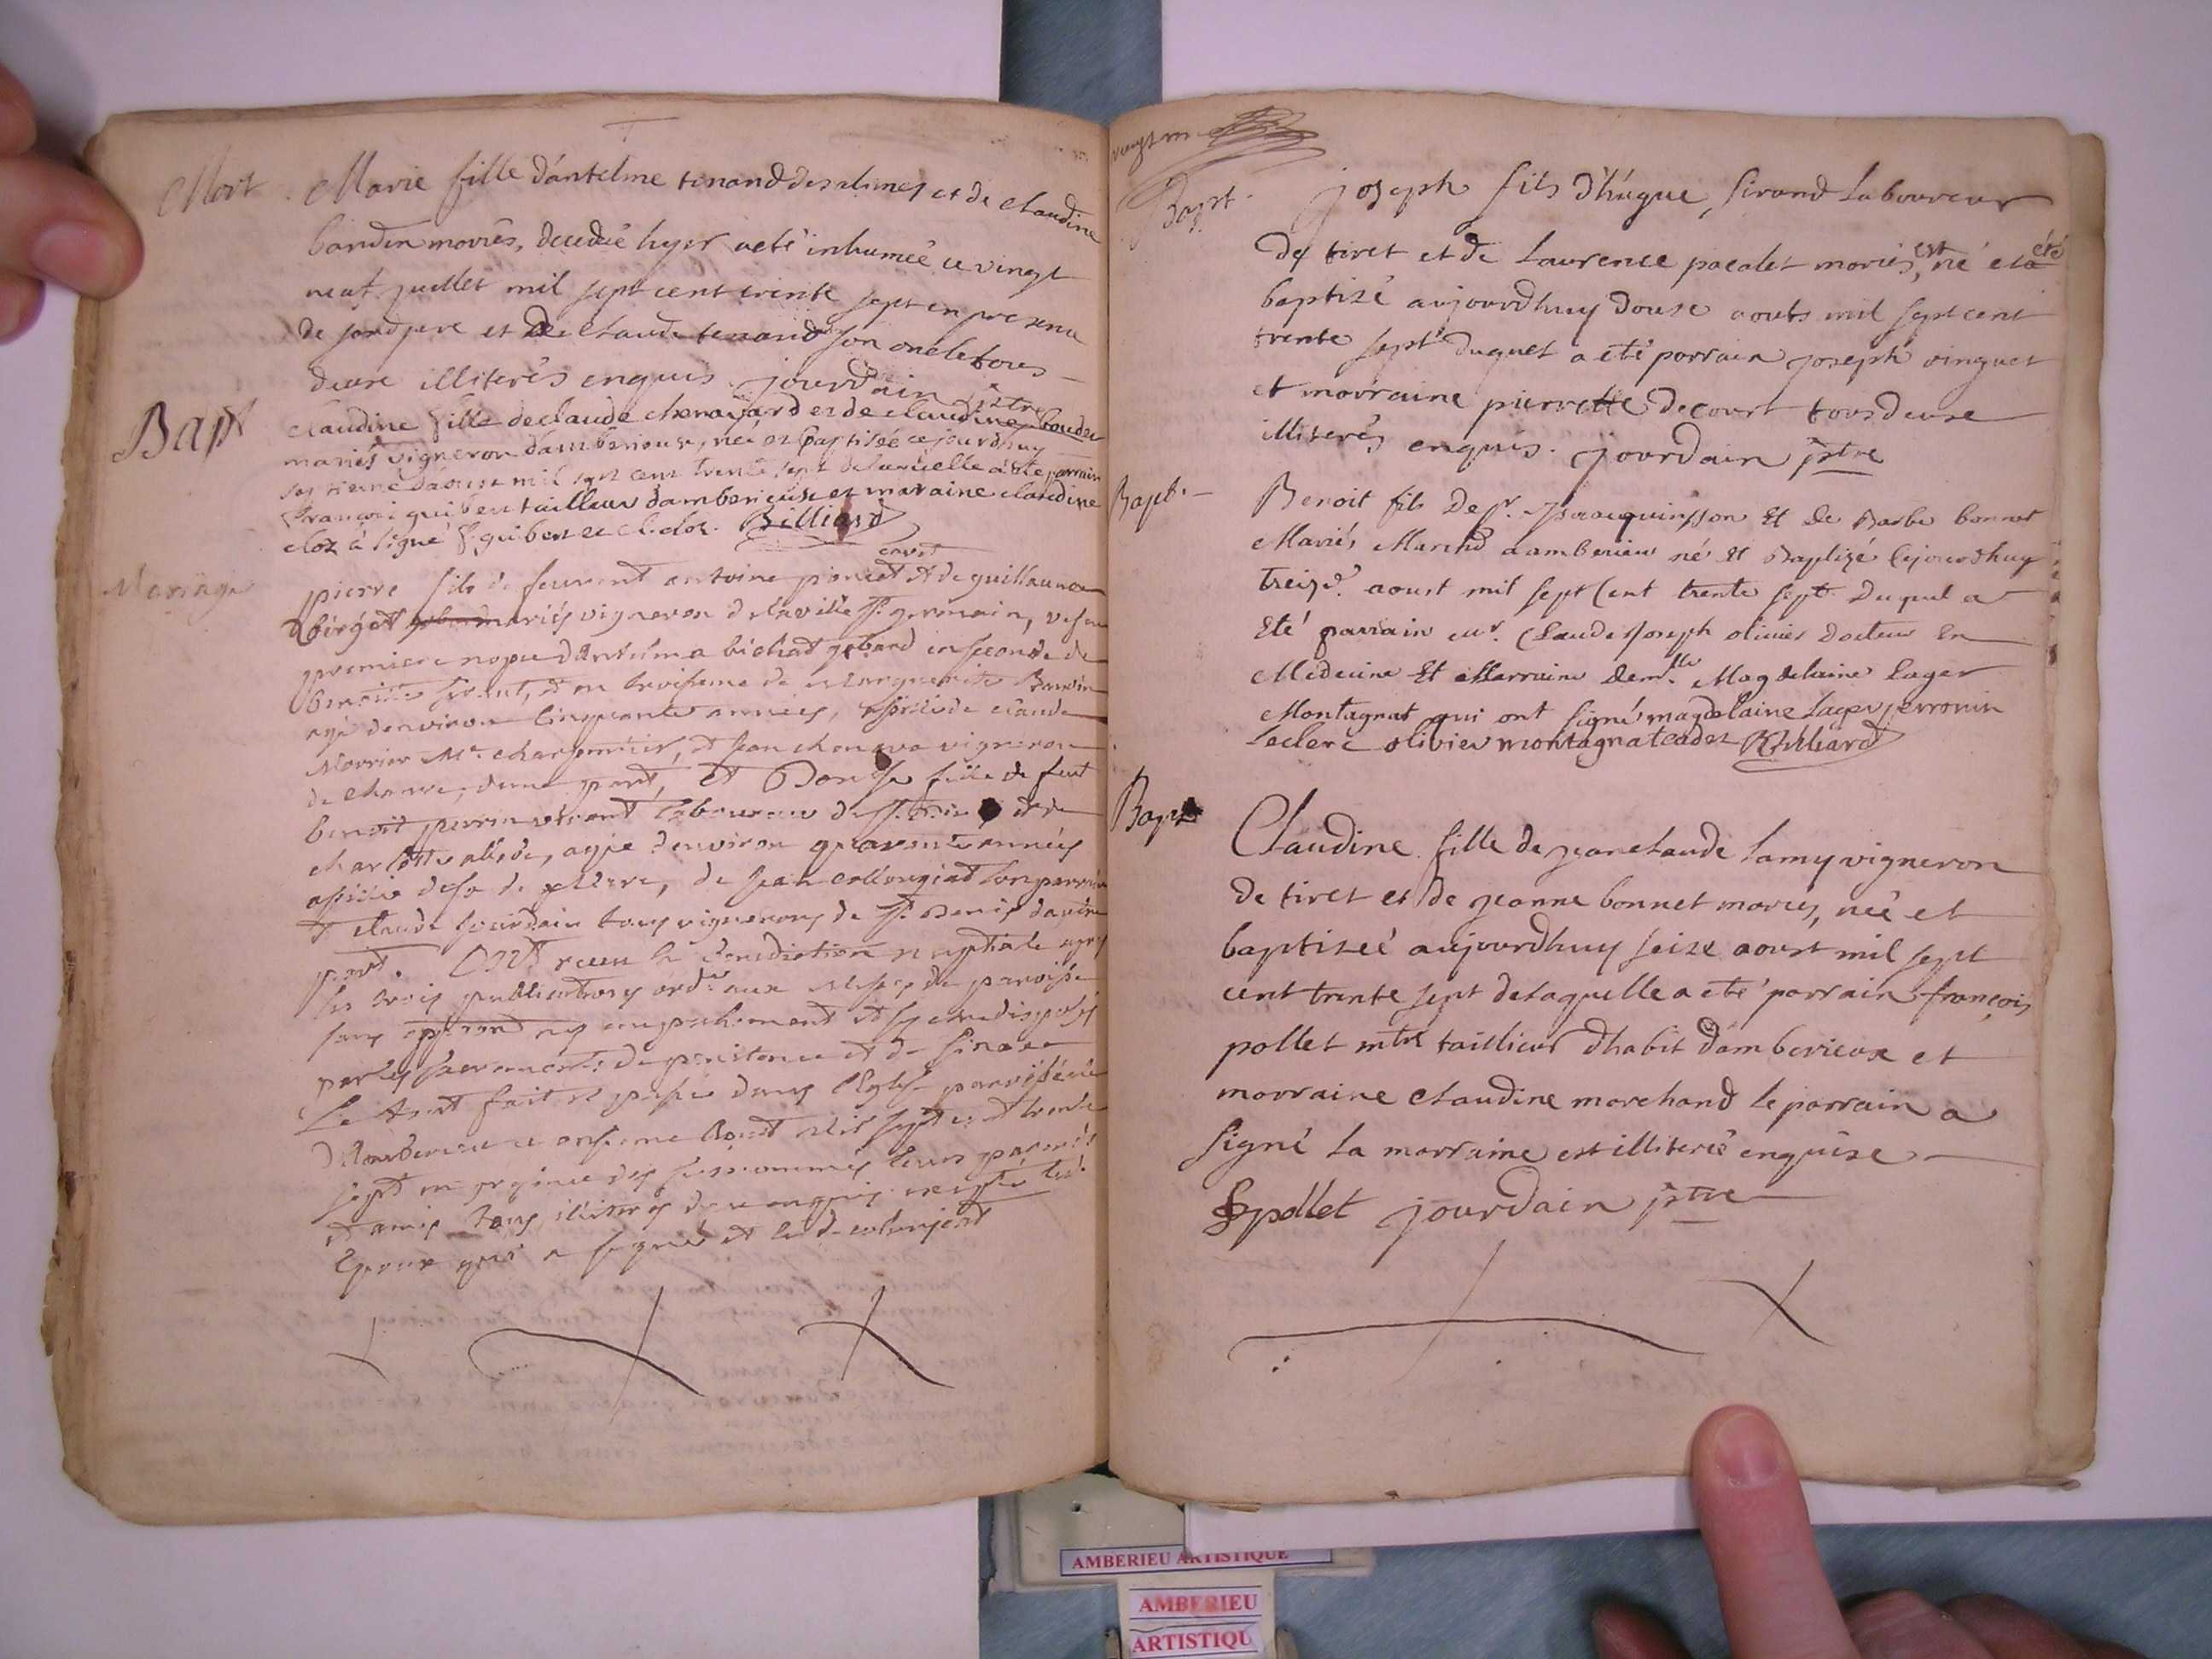 Mort
Marie fille d'antelme tenand des alimes et de claudine
bandin mariés, decedeé hyer a eté inhumeé ce vingt
neuf juillet mil sept cent trente sept en presence
de son d pere et de claude tenand son oncle tous
deux illiterés enquis. jourdain ptre
Bapt
claudine fille de claude chenavard et de claudine
mariés vigneron damberieux, neé et baptiseé ce jourdhuy
daoust mil sept cent trente sept de laquelle a ete parrain
françois guibert tailleur damberieux et maraine claudine
cloz a signé f. guibert et Billiard
Mariage
pierre fils de feu vivant antoine poncet et de guillaumaz
mariés vigneron de la ville st. germain, vef en
premiere nopce dAntelma bichat en seconde de
benoite et en troisieme de Marguerite
agé denviron cinquante années, assisté de claude
Morrier Me. charpentier, et jean vigneron
de dune part, et Denise fille de feu
benoit perrin vivant laboureur de st. Denis et de
charlotte agée denviron quarante années
assistée de de pierre, de jean son parrain
et claude jourdain tous vignerons de st. Denis dautre
part. Ont receu la benediction nuptiale apres
les trois publications ordres aux Messes de paroisse
sans empechement et se sont disposés
par les sacrements de penitence et de
Le tout fait et passé dans l'Eglise paroissiale
dAmberieu ce onsieme Aoust Mil sept cent trente
sept en presence des susnommés leurs parents
et amis tous illiterés de ce enquis excepté led.
Epoux qui a signé et le d.
vingt un
Bapt.
joseph fils d'hugue, sirand laboureur
de tiret et de Laurence pacalet mariés, est né et a été
baptizé aujourdhuy douze aouts mil sept cent
trente sept duquel a eté parrain joseph vinguet
et marraine pierrette decourt tous deux
illiterés enquis. jourdain ptre
Bapt.
Benoit fils De Sr. Jsaac quinsson Et de Barbe bonnet
Mariés Marchd a amberieu né Et Baptizé Cejourdhuy
treize. aoust mil sept Cent trente sept Duquel a
Eté parrain mr. Claude Joseph olivier docteur En
Medecine Et Marraine demlle. Magdelaine Lager
Montagnat qui ont signé magdelaine lager perronin
leclerc olivier montagnat cadet Billiard
Bapt.
Claudine fille de jean claude lamy vigneron
de tiret et de jeanne bonnet mariés, neé et
baptizeé aujourdhuy seize aoust mil sept
cent trente sept de laquelle a eté parrain françois
pollet mtre taillieur d'habit d'amberieux et
marraine claudine marchand le parrain a
signé la marraine est illitereé enquise
f pollet jourdain ptre
AMBERIEU ARTISTIQUE
AMBERIEU
ARTISTIQU